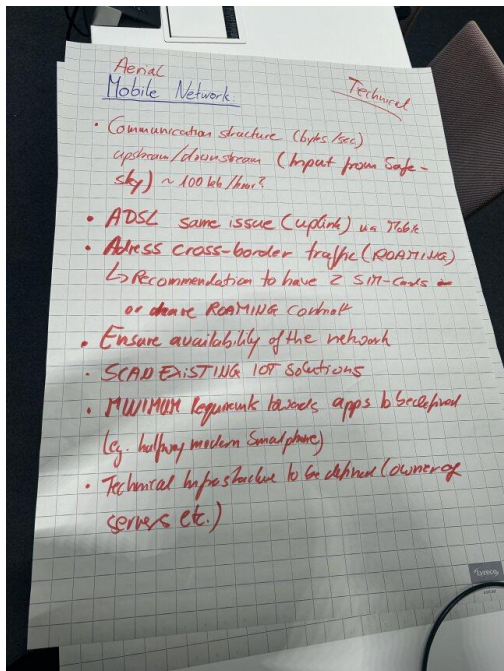 Aerial
Mobile Network:
Technical
• Communication structure (bytes/sec)
upstream/downstream (Input from Safe-
sky) ~ 100 kb/hour?
• ADSL same issue (uplink) via Mobile
• Adress cross-border traffic (ROAMING)
↳ Recommendation to have 2 SIM-Cards
or have ROAMING contract
• Ensure availability of the network
• SCAN EXISTING IOT solutions
• MINIMUM Requirements towards apps to be defined
(eg. halfway modern Smartphone)
• Technical Infrastructure to be defined (owner of
servers etc.)
lyreco